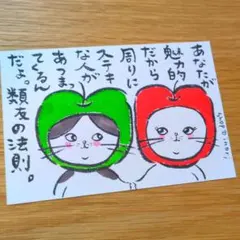 あなたが
魅力的
だから
周りに
ステキ
な人が
あつまっ
てくるん
だよ。
類友の法則。